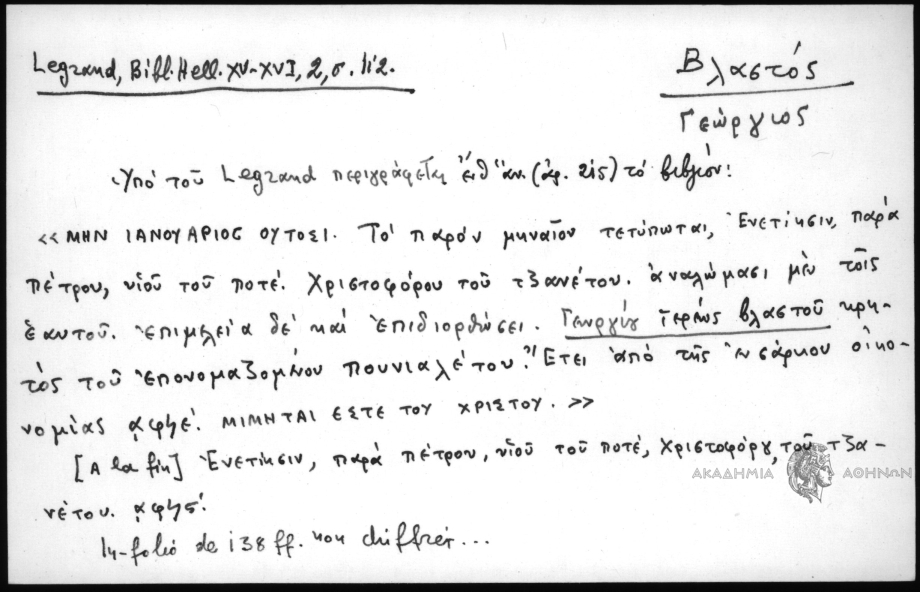 Legrand, Bibl. Hell. XV-XVI, 2, σ. 112.
Βλαστός
Γεώργιος
Ὑπό τοῦ Legrand περιγράφεται (ἀρ. 215) τό βιβλίον:
«ΜΗΝ ΙΑΝΟΥΑΡΙΟΣ ΟΥΤΟΣΙ. Τό παρόν μηναῖον τετύπωται, Ἐνετίησιν, παρά
πέτρου, υἱοῦ τοῦ ποτέ. Χριστοφόρου τοῦ τζανέτου. ἀναλώμασι μὲν τοῖς
ἑαυτοῦ. ἐπιμελεία δέ καί ἐπιδιορθώσει. Γεωργίου ἱερέως βλαστοῦ κρη-
τὸς τοῦ ἐπονομαζομένου πουνιαλέτου. Ἔτει ἀπό τῆς ἐνσάρκου οἰκο-
νομίας ͵αφϟέ. ΜΙΜΗΤΑΙ ΕΣΤΕ ΤΟΥ ΧΡΙΣΤΟΥ.»
[A la fin] Ἐνετίησιν, παρά πέτρου, υἱοῦ τοῦ ποτέ, χριστοφόρου, τοῦ τζα-
νέτου. ͵αφϟς.
In-folio de 138 ff. non chiffrés...
ΑΚΑΔΗΜΙΑ ΑΘΗΝΩΝ